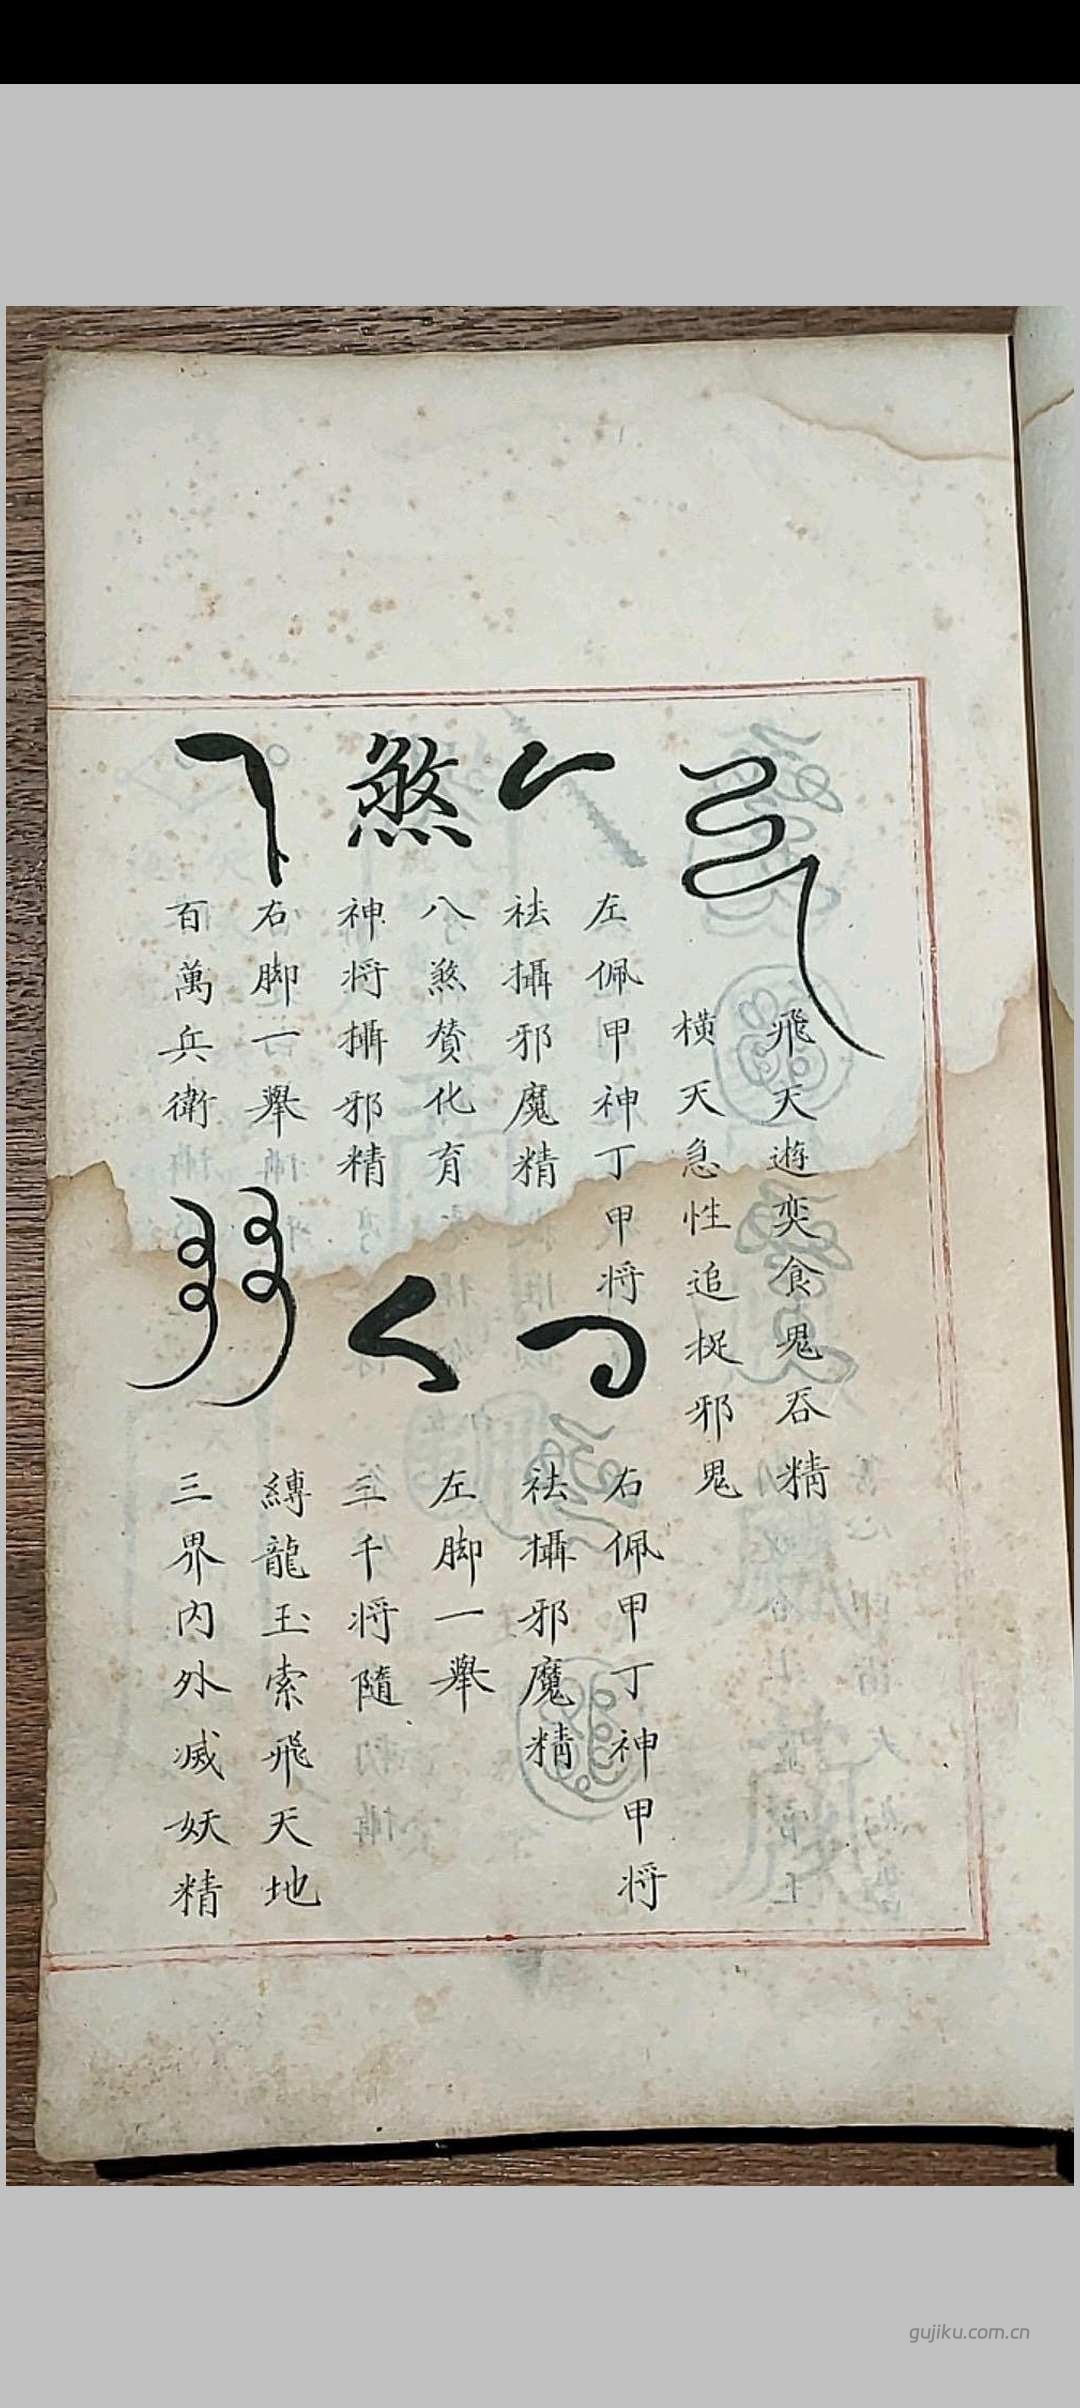 飛天遊奕食鬼吞精
橫天急性追捉邪鬼
左佩甲神丁甲将
祛攝邪魔精
右佩甲丁神甲将
祛攝邪魔精
煞
八煞賛化育
神将攝邪精
左脚一舉
三千将隨
右脚一舉
百萬兵衛
縛龍玉索飛天地
三界内外滅妖精
gujiku.com.cn